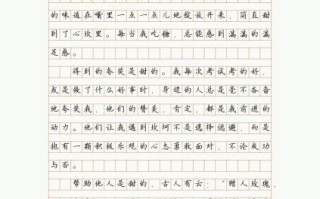 的味道在嘴里一点一点儿地绽放开来，简直甜
到了心坎里。每当我吃糖，总能感到满满的满
足感。
得到的夸奖是甜的。我每次考试考的好，
或是做了什么好事时，身边的人总是毫不吝啬
地夸奖我，他们的赞美、肯定，都是我前进的
动力。他们让我遇到坎坷不是选择逃避，而是
抱有一颗积极乐观的心态勇敢面对，不论成功
与否。
帮助他人是甜的，古人有云：“赠人玫瑰，